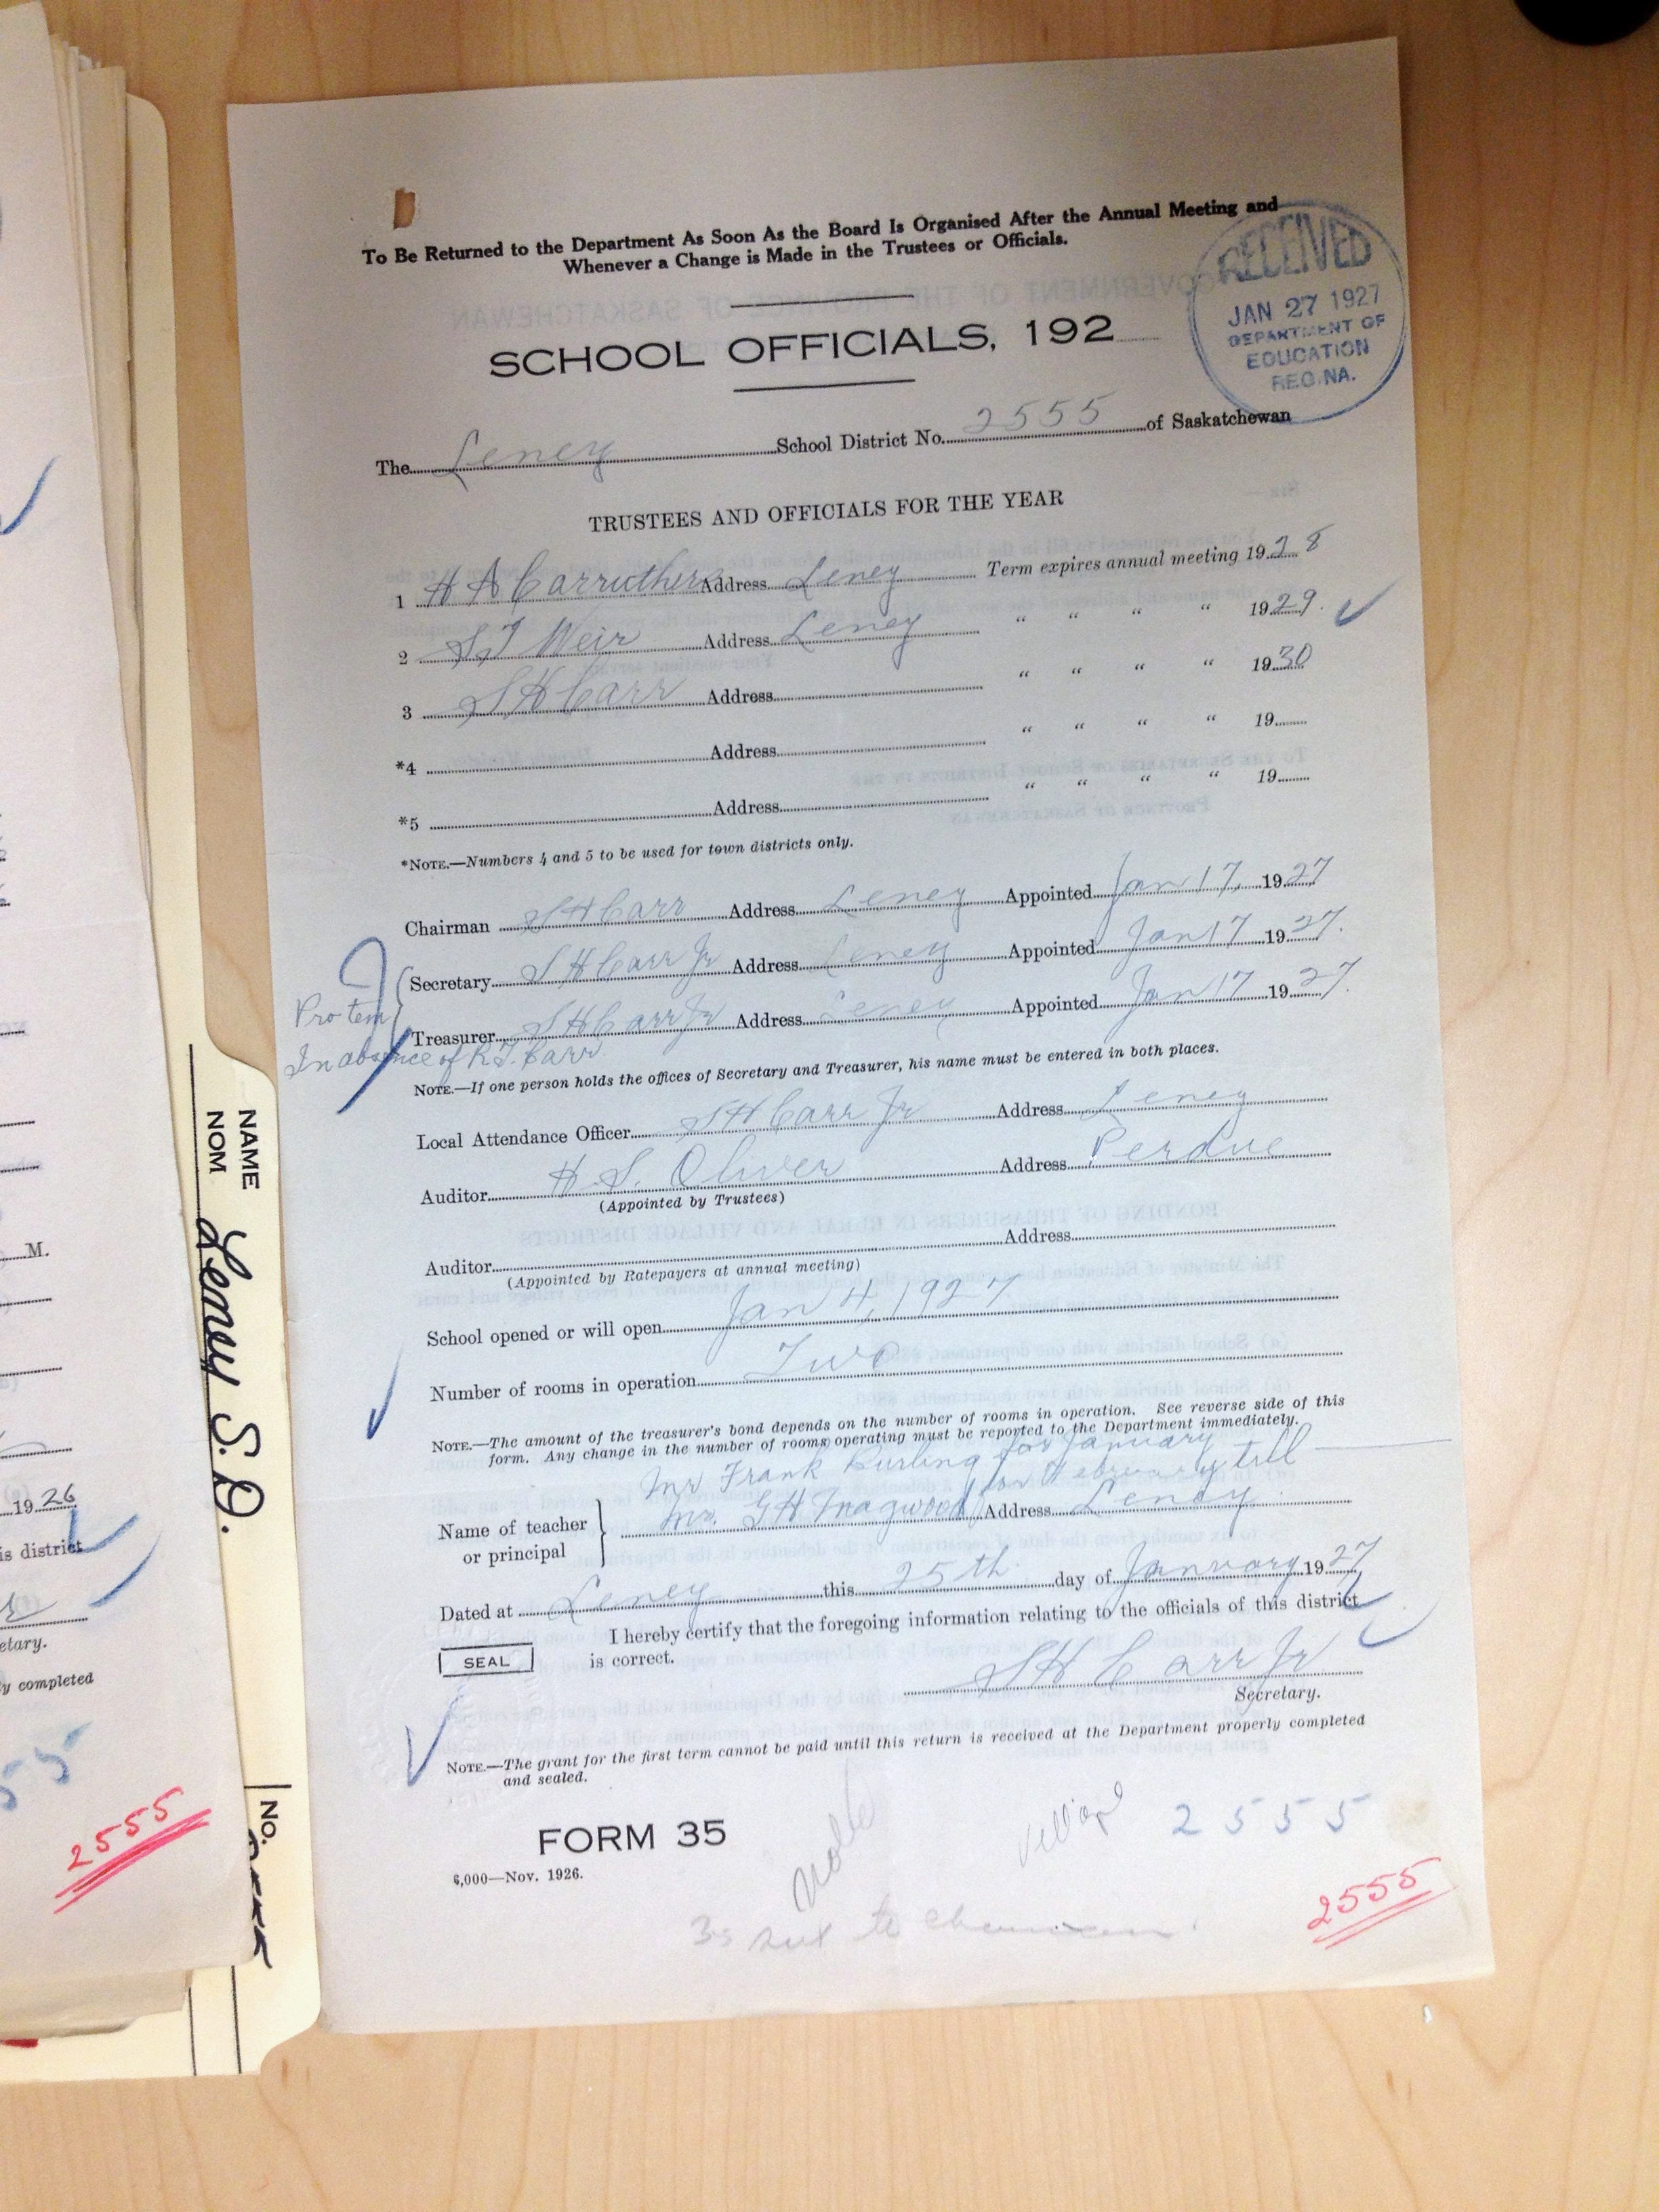 To Be Returned to the Department As Soon As the Board Is Organised After the Annual Meeting and
Whenever a Change is Made in the Trustees or Officials.
RECEIVED
JAN 27 1927
DEPARTMENT OF
EDUCATION
REGINA.
SCHOOL OFFICIALS, 192
The Leney School District No. 2555 of Saskatchewan
TRUSTEES AND OFFICIALS FOR THE YEAR
1 H A Carruthers Address Leney Term expires annual meeting 1928
2 S J Weir Address Leney " " " " 1929.
3 S H Carr Address " " " " 1930
*4 Address " " " " 19
*5 Address " " " " 19
*NOTE.—Numbers 4 and 5 to be used for town districts only.
Chairman S H Carr Address Leney Appointed Jan 17, 1927
Secretary S H Carr Jr Address Leney Appointed Jan 17 1927.
Pro tem
Treasurer S H Carr Jr Address Leney Appointed Jan 17 1927.
In absence of R.J. Carr.
NOTE.—If one person holds the offices of Secretary and Treasurer, his name must be entered in both places.
Local Attendance Officer S H Carr Jr Address Leney
Auditor H. S. Oliver Address Perdue
(Appointed by Trustees)
Auditor Address
(Appointed by Ratepayers at annual meeting)
School opened or will open Jan 4, 1927
Number of rooms in operation Two
NOTE.—The amount of the treasurer's bond depends on the number of rooms in operation. See reverse side of this
form. Any change in the number of rooms operating must be reported to the Department immediately.
Mr Frank Burling for January
for February till
Name of teacher
or principal
Mr. G H Magwood Address Leney
Dated at Leney this 25th day of January 1927
I hereby certify that the foregoing information relating to the officials of this district
is correct.
SEAL
S H Carr Jr
Secretary.
NOTE.—The grant for the first term cannot be paid until this return is received at the Department properly completed
and sealed.
FORM 35
6,000—Nov. 1926.
Village
2555
2555
NAME
NOM
Leney S.D.
No.
M.
1926
is district
etary.
y completed
55
2555